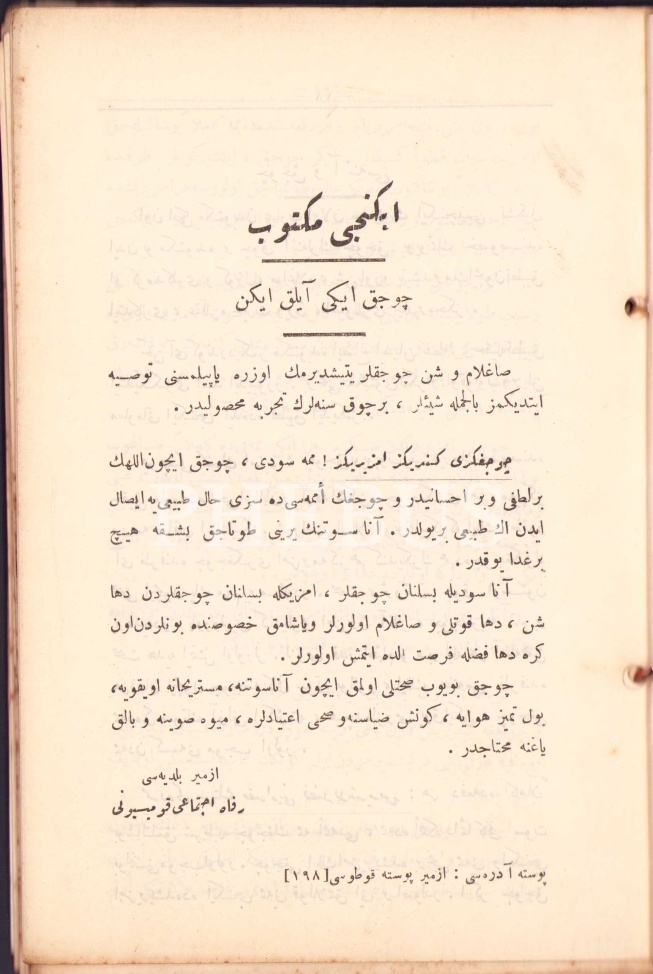 ایكنجی مكتوب
چوجق ایكی آیلق ایكن
صاغلام و شن چوجقلر یتیشدیرمك اوزره یاپیلمسنی توصیه
ایتدیكمز بالجمله شیئلر ، برچوق سنه‌لرك تجربه محصولیدر .
چوجغكزی كندیكز امزیریكز ! ممه سودی ، چوجق ایچون‌اللهك
برلطفی وبر احسانیدر و چوجغك أممه‌سی‌ده سزی حال طبیعی‌یه ایصال
ایدن اك طبیعی بریولدر . آنا سوتنك یرینی طوتاجق بشقه هیچ
برغدا یوقدر .
آنا سودیله بسلنان چوجقلر ، امزیكله بسلنان چوجقلردن دها
شن ، دها قوتلی و صاغلام اولورلر ویاشامق خصوصنده بونلردن‌اون
كره دها فضله فرصت الده ایتمش اولورلر .
چوجق بویوب صحتلی اولمق ایچون آناسوتنه، مستریحانه اویقویه،
بول تمیز هوایه ، كونش ضیاسنه‌و صحی اعتیادلره ، میوه صوینه و بالق
یاغنه محتاجدر .
ازمیر بلدیه‌سی
رفاه اجتماعی قومیسیونی
پوسته آدره‌سی : ازمیر پوسته قوطوسی[۱۹۸]